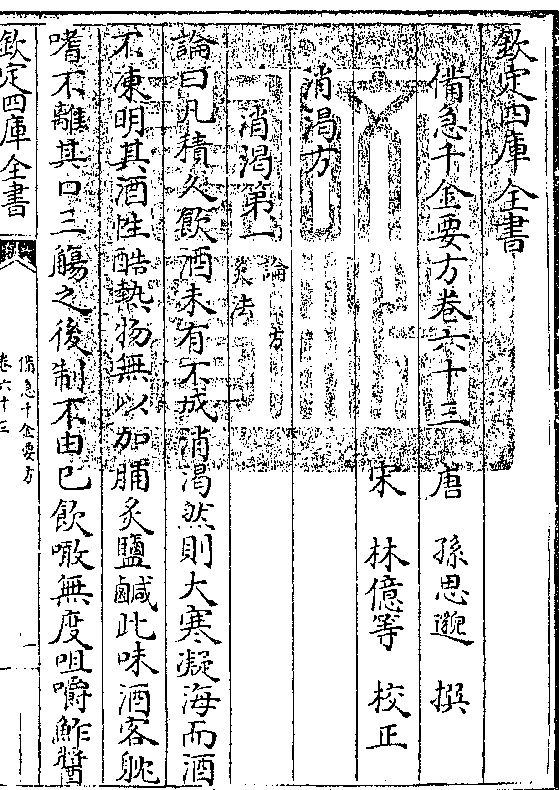 欽定四庫全書
備急千金要方卷六十三　唐　孫思邈　撰
宋　林億等　校正
消渴方
消渴第一　論　方　灸法
論曰凡積久飲酒未有不成消渴然則大寒凝海而酒
不凍明其酒性酷熱物無以加脯炙鹽鹹此味酒客躭
嗜不離其口三觴之後制不由己飲噉無度咀嚼鮓醬
欽定四庫全書
備急千金要方
卷六十三
一